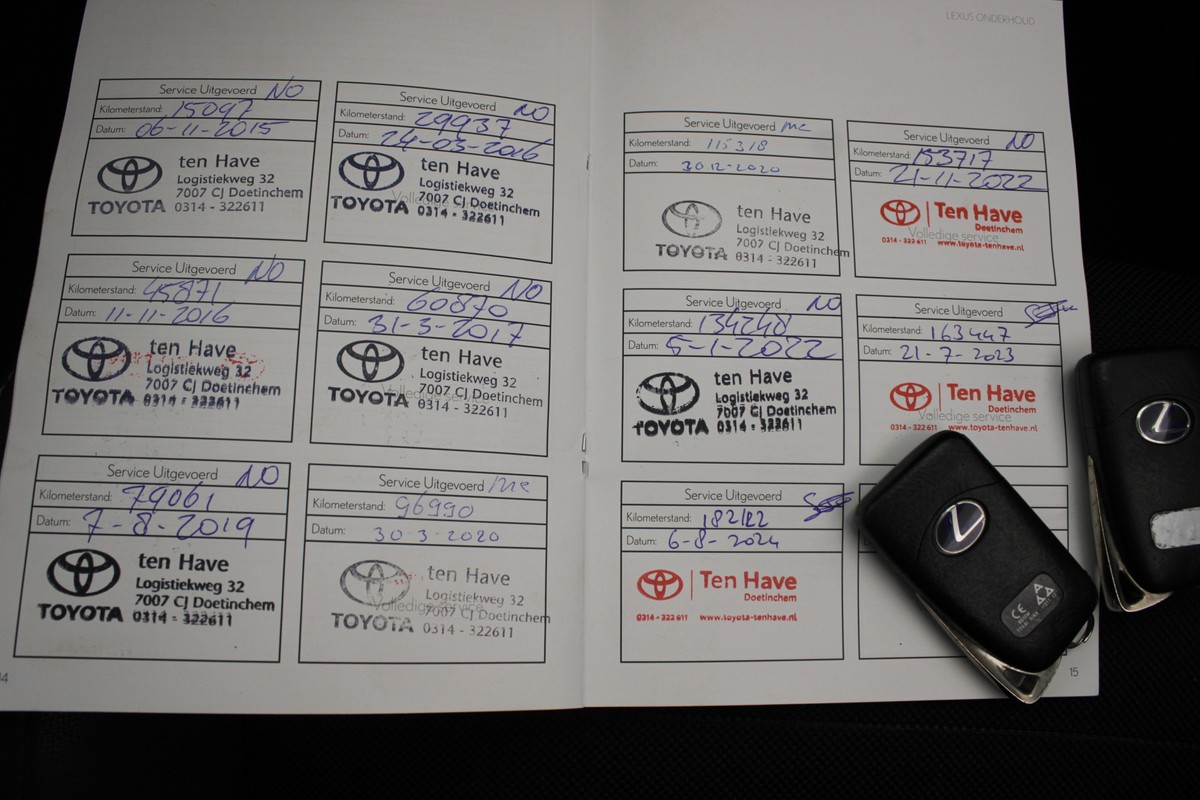 LEXUS ONDERHOUD
Service Uitgevoerd NO
Kilometerstand: 15097
Datum: 06-11-2015
ten Have
Logistiekweg 32
7007 CJ Doetinchem
TOYOTA 0314 - 322611
Service Uitgevoerd NO
Kilometerstand: 29937
Datum: 24-03-2016
ten Have
Logistiekweg 32
7007 CJ Doetinchem
Volledige service
TOYOTA 0314 - 322611
Service Uitgevoerd NO
Kilometerstand: 45871
Datum: 11-11-2016
ten Have
Logistiekweg 32
7007 CJ Doetinchem
TOYOTA 0314 - 322611
Service Uitgevoerd NO
Kilometerstand: 60870
Datum: 31-3-2017
ten Have
Logistiekweg 32
7007 CJ Doetinchem
Volledige service
TOYOTA 0314 - 322611
Service Uitgevoerd NO
Kilometerstand: 79061
Datum: 7-8-2019
ten Have
Logistiekweg 32
7007 CJ Doetinchem
TOYOTA 0314 - 322611
Service Uitgevoerd
Kilometerstand: 96990
Datum: 30-3-2020
ten Have
Logistiekweg 32
Volledige service
7007 CJ Doetinchem
TOYOTA 0314 - 322611
14
Service Uitgevoerd
Kilometerstand: 115318
Datum: 30-12-2020
ten Have
Logistiekweg 32
7007 CJ Doetinchem
TOYOTA 0314 - 322611
Service Uitgevoerd NO
Kilometerstand: 153717
Datum: 21-11-2022
Ten Have
Doetinchem
Volledige service
0314 - 322 611 www.toyota-tenhave.nl
Service Uitgevoerd NO
Kilometerstand: 134248
Datum: 5-1-2022
ten Have
Logistiekweg 32
7007 CJ Doetinchem
TOYOTA 0314 - 322611
Service Uitgevoerd
Kilometerstand: 163447
Datum: 21-7-2023
Ten Have
Doetinchem
Volledige service
0314 - 322 611 www.toyota-tenhave.nl
Service Uitgevoerd
Kilometerstand: 182122
Datum: 6-8-2024
Ten Have
Doetinchem
0314 - 322 611 www.toyota-tenhave.nl
15
CE